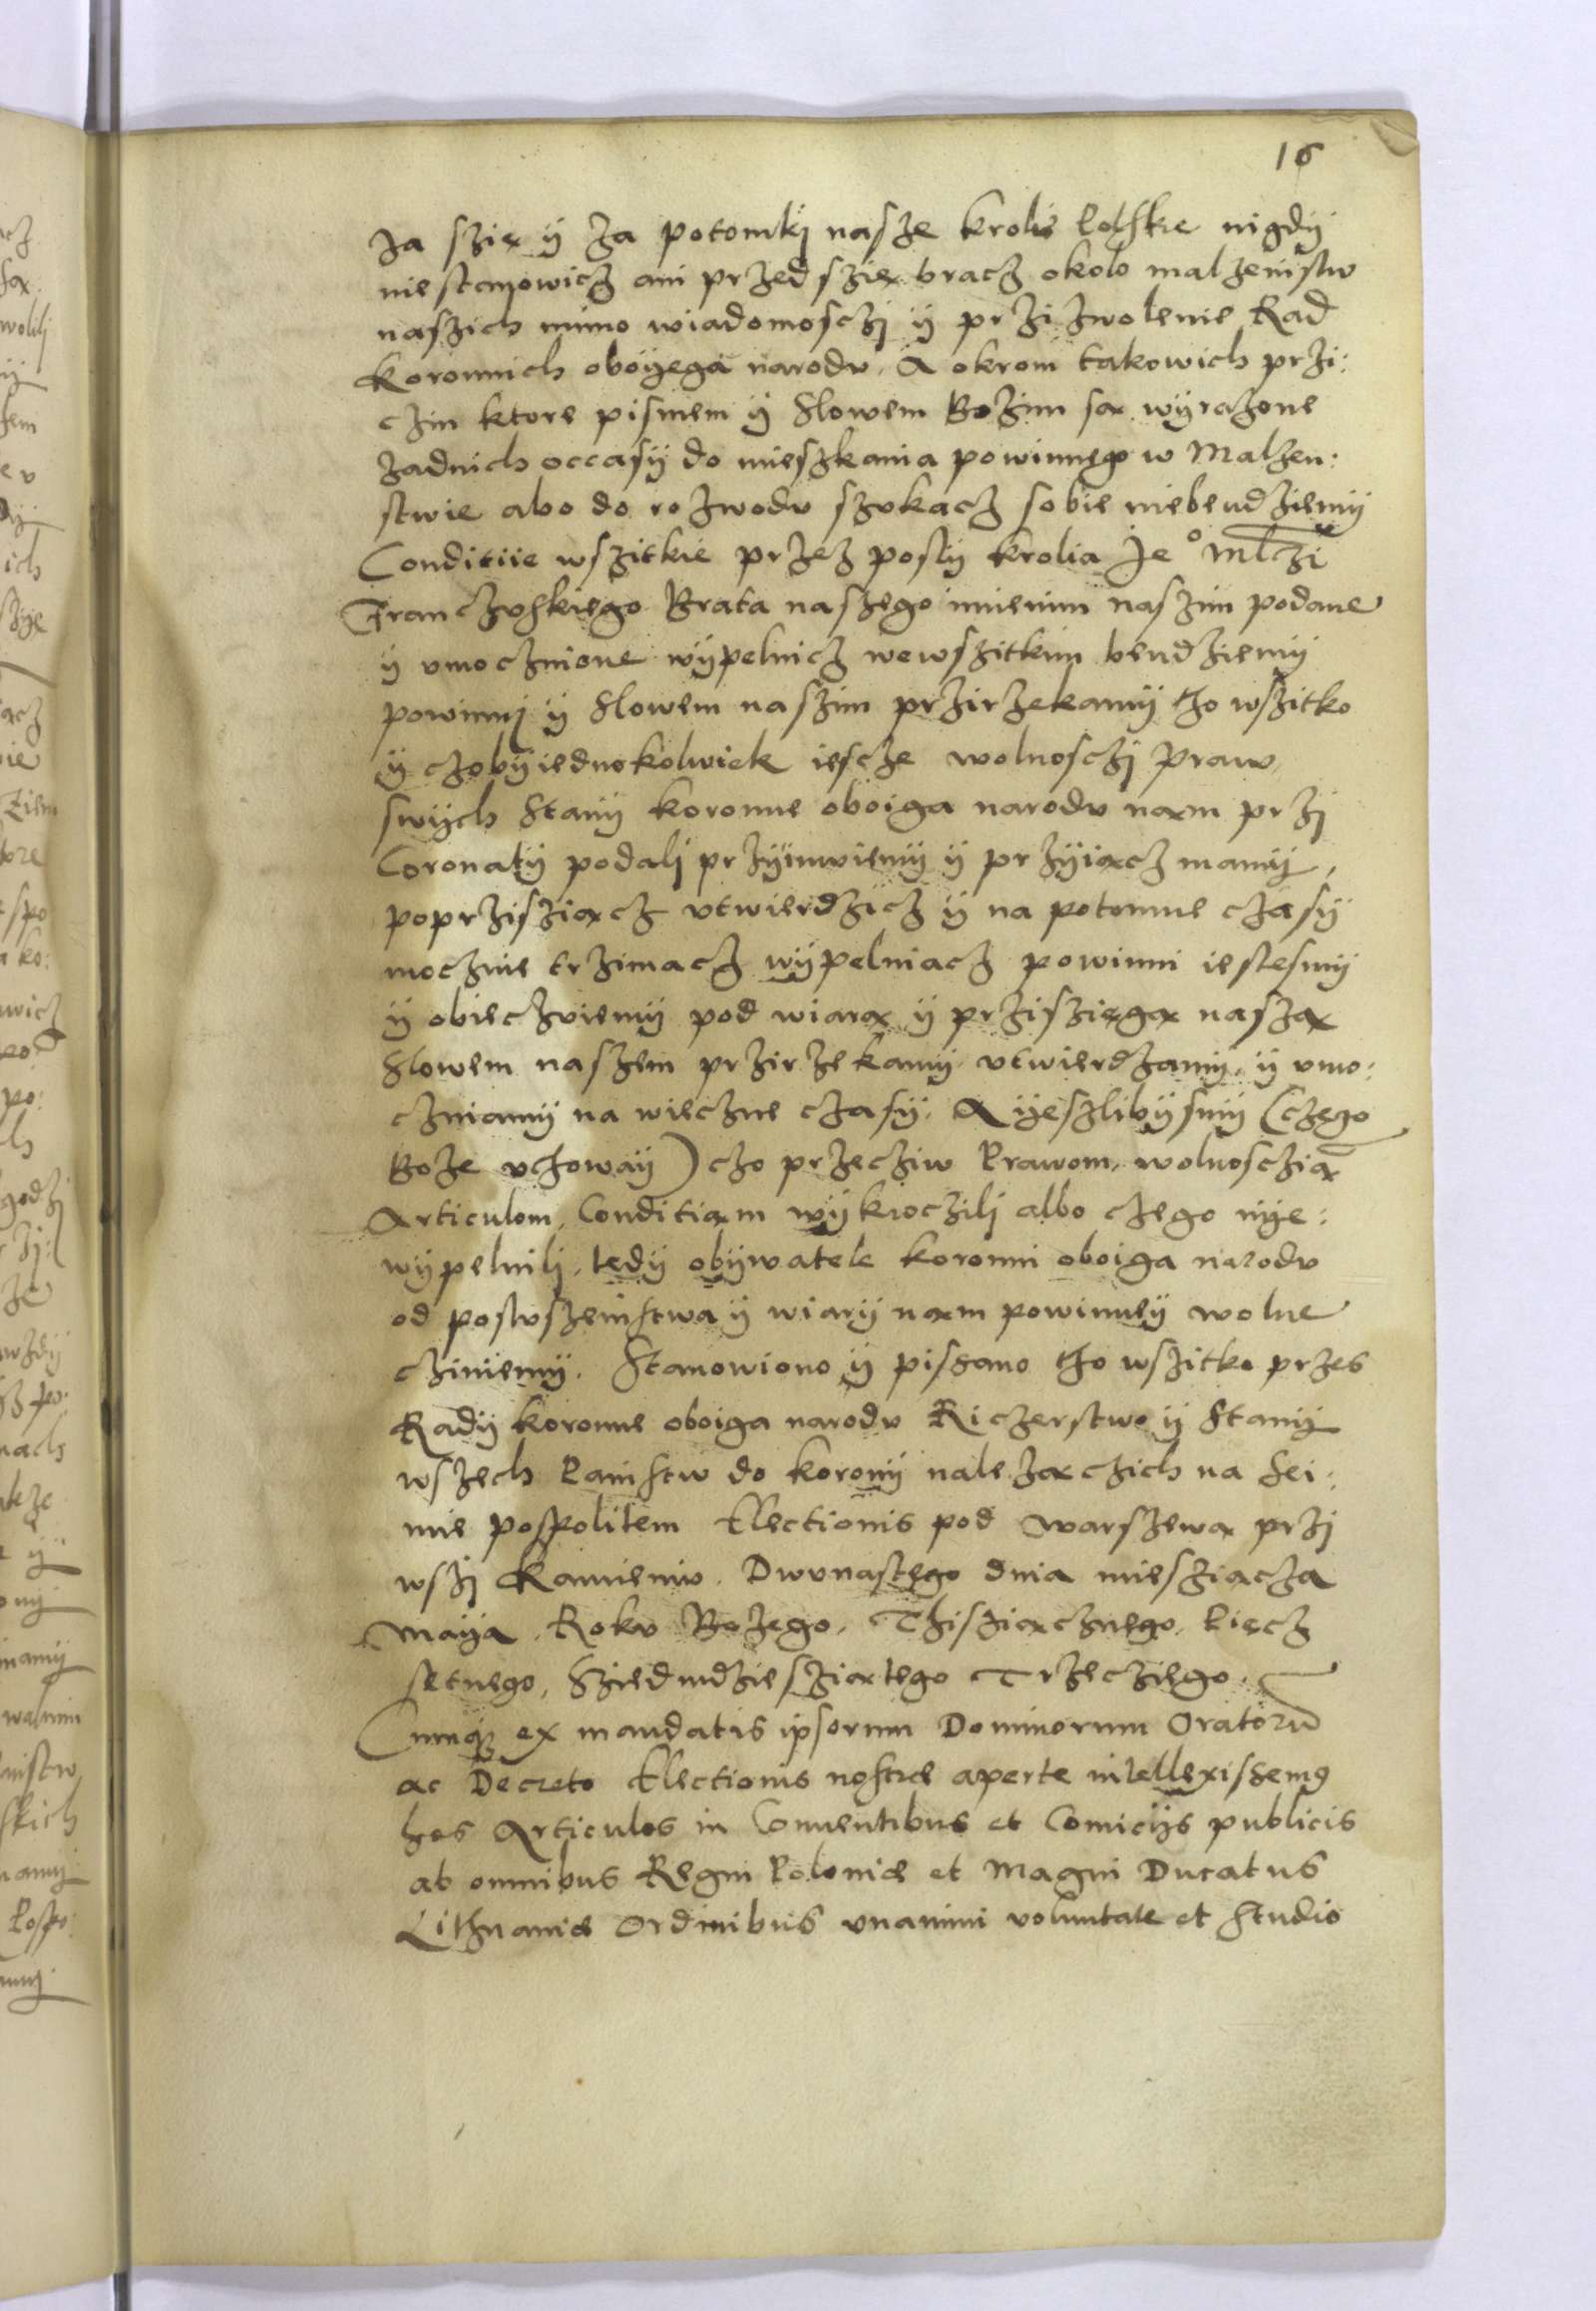 16
Za szię ÿ za potomkj nasze krolie Polskie nigdÿ
niestanowicz ani przed szię bracz okolo malzenistw
naszich mimo wiadomosczj ÿ przizwolenie Rad
Koronnich oboÿega narodu. A okrom takowich przi:
czin ktore pismem ÿ Slowem Bozim są wÿrazone
zadnich occasÿ do mieszkania powinnego w Malzen:
stwie abo do rozwodu szukacz sobie niebendziemÿ
Conditiie wszitkie przez poslÿ krolia Je° Mlczi
Franczuskiego Brata naszego imienim naszim podane
ÿ umocznione wÿpelnicz wewszitkim bendziemÿ
powinnj ÿ Slowem naszim przirzekamÿ tho wszitko
ÿ czobÿiednokolwiek iescze wolnosczj praw
swÿch Stanÿ koronne oboiga narodu nąm przj
Coronatÿ podalj przÿimuiemÿ ÿ przÿiącz mamÿ,
poprzisziącz utwierdzicz ÿ na potomne czasÿ
mocznie trzimacz wÿpelniacz powinni iestesmÿ
ÿ obieczuiemÿ pod wiarą ÿ prziszięgą naszą
Slowem naszem przirzekamÿ utwierdzamÿ, ÿ umo:
czniamÿ na wieczne czasÿ. A ÿeszlibÿsmÿ (czego
Boze uchowaÿ) czo przecziw Prawom, wolnoscziā
Articulom, Conditiąm wÿkroczilj albo czego nÿe:
wÿpelnilj, tedÿ obÿwatele koronni oboiga narodu
od posluszenstwa ÿ wiarÿ nąm powinneÿ wolne
cziniemÿ. Stanowiono ÿ pissano tho wszitko przes
Radÿ koronne oboiga narodu Riczerstwo ÿ Stanÿ
wszech Panstw do koronÿ nalezączich na Sei:
mie pospolitem Electionis pod Warszewą przj
wszj Kamieniu. Dwunastego dnia miesziącza
Maÿa. Roku Bozego, Thisziącznego, Piecz
setnego, Sziedmdziesziątego Trzecziego.
Cumqꝫ ex mandatis ipsorum Dominorum Oratorū
ac Decreto Electionis nostræ aperte intellexissemꝰ
hos Articulos in Conuentibus et Comicÿs publicis
ab omnibus Regni Poloniæ et Magni Ducatus
Lithuaniæ Ordinibus unanimi voluntate et studio